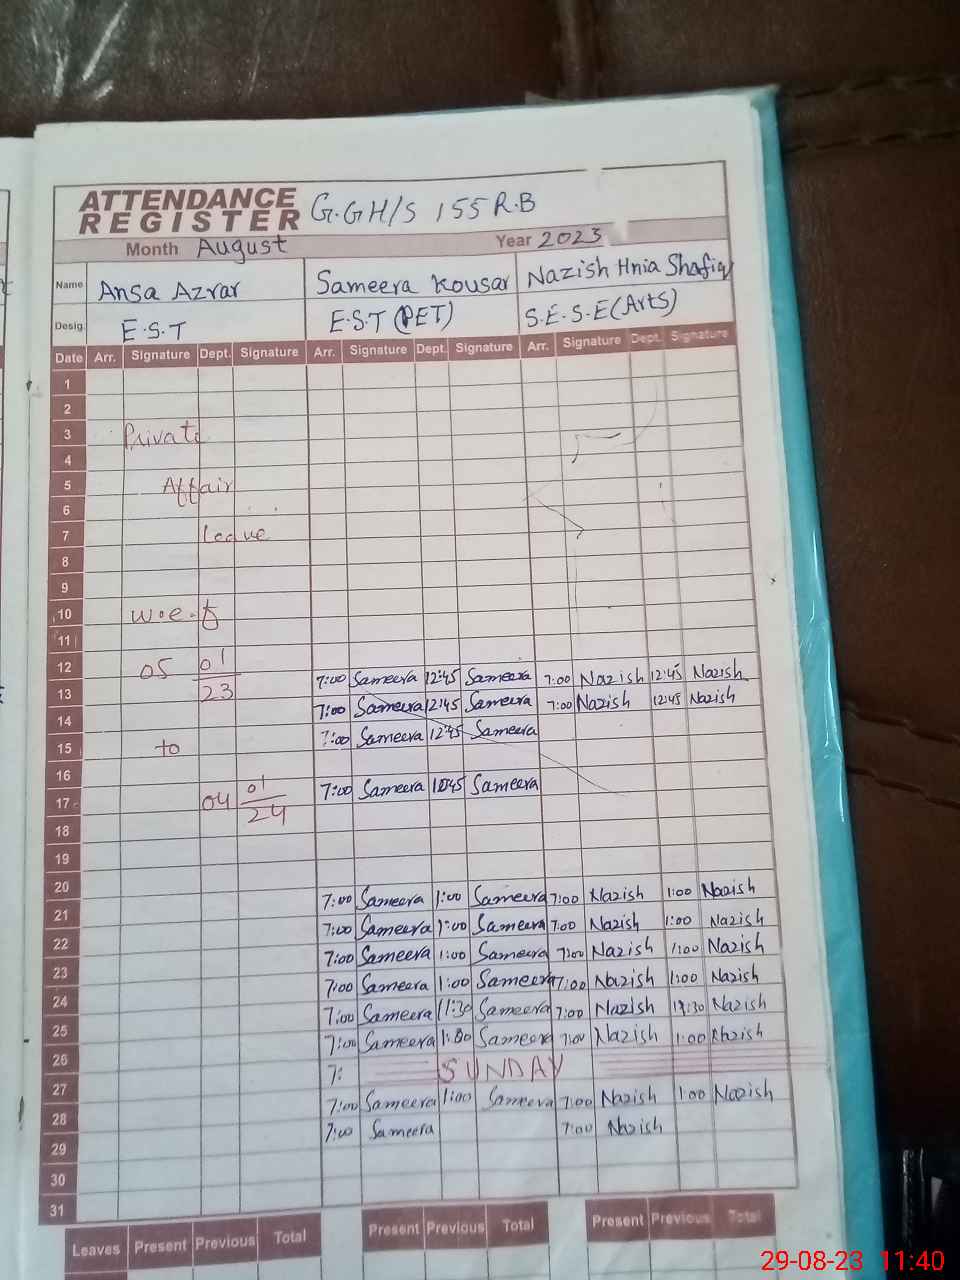 ATTENDANCE REGISTER G.GH/S 155 R.B
Month August Year 2023
Name Ansa Azvar Sameera Kousar Nazish Hnia Shafiq
Desig. E.S.T E.S.T (PET) S.E.S.E (Arts)
Date Arr. Signature Dept. Signature Arr. Signature Dept. Signature Arr. Signature Dept. Signature
1
2
3 Private
4
5 Affair
6
7 Leave
8
9
10 w.e.f
11
12 05 01 7:00 Sameera 12:45 Sameera 7:00 Nazish 12:45 Nazish
13 23 7:00 Sameera 12:45 Sameera 7:00 Nazish 12:45 Nazish
14 7:00 Sameera 12:45 Sameera
15 to
16 01 7:00 Sameera Sameera
17 04 24
18
19
20 7:00 Sameera 1:00 Sameera 7:00 Nazish 1:00 Nazish
21 7:00 Sameera 1:00 Sameera 7:00 Nazish 1:00 Nazish
22 7:00 Sameera 1:00 Sameera 7:00 Nazish 1:00 Nazish
23 7:00 Sameera 1:00 Sameera 7:00 Nazish 1:00 Nazish
24 7:00 Sameera 11:30 Sameera 7:00 Nazish 11:30 Nazish
25 7:00 Sameera 1:00 Sameera 7:00 Nazish 1:00 Nazish
26 7: SUNDAY
27 7:00 Sameera 1:00 Sameera 7:00 Nazish 1:00 Nazish
28 7:00 Sameera 7:00 Nazish
29
30
31
Leaves Present Previous Total Present Previous Total Present Previous Total
29-08-23 11:40